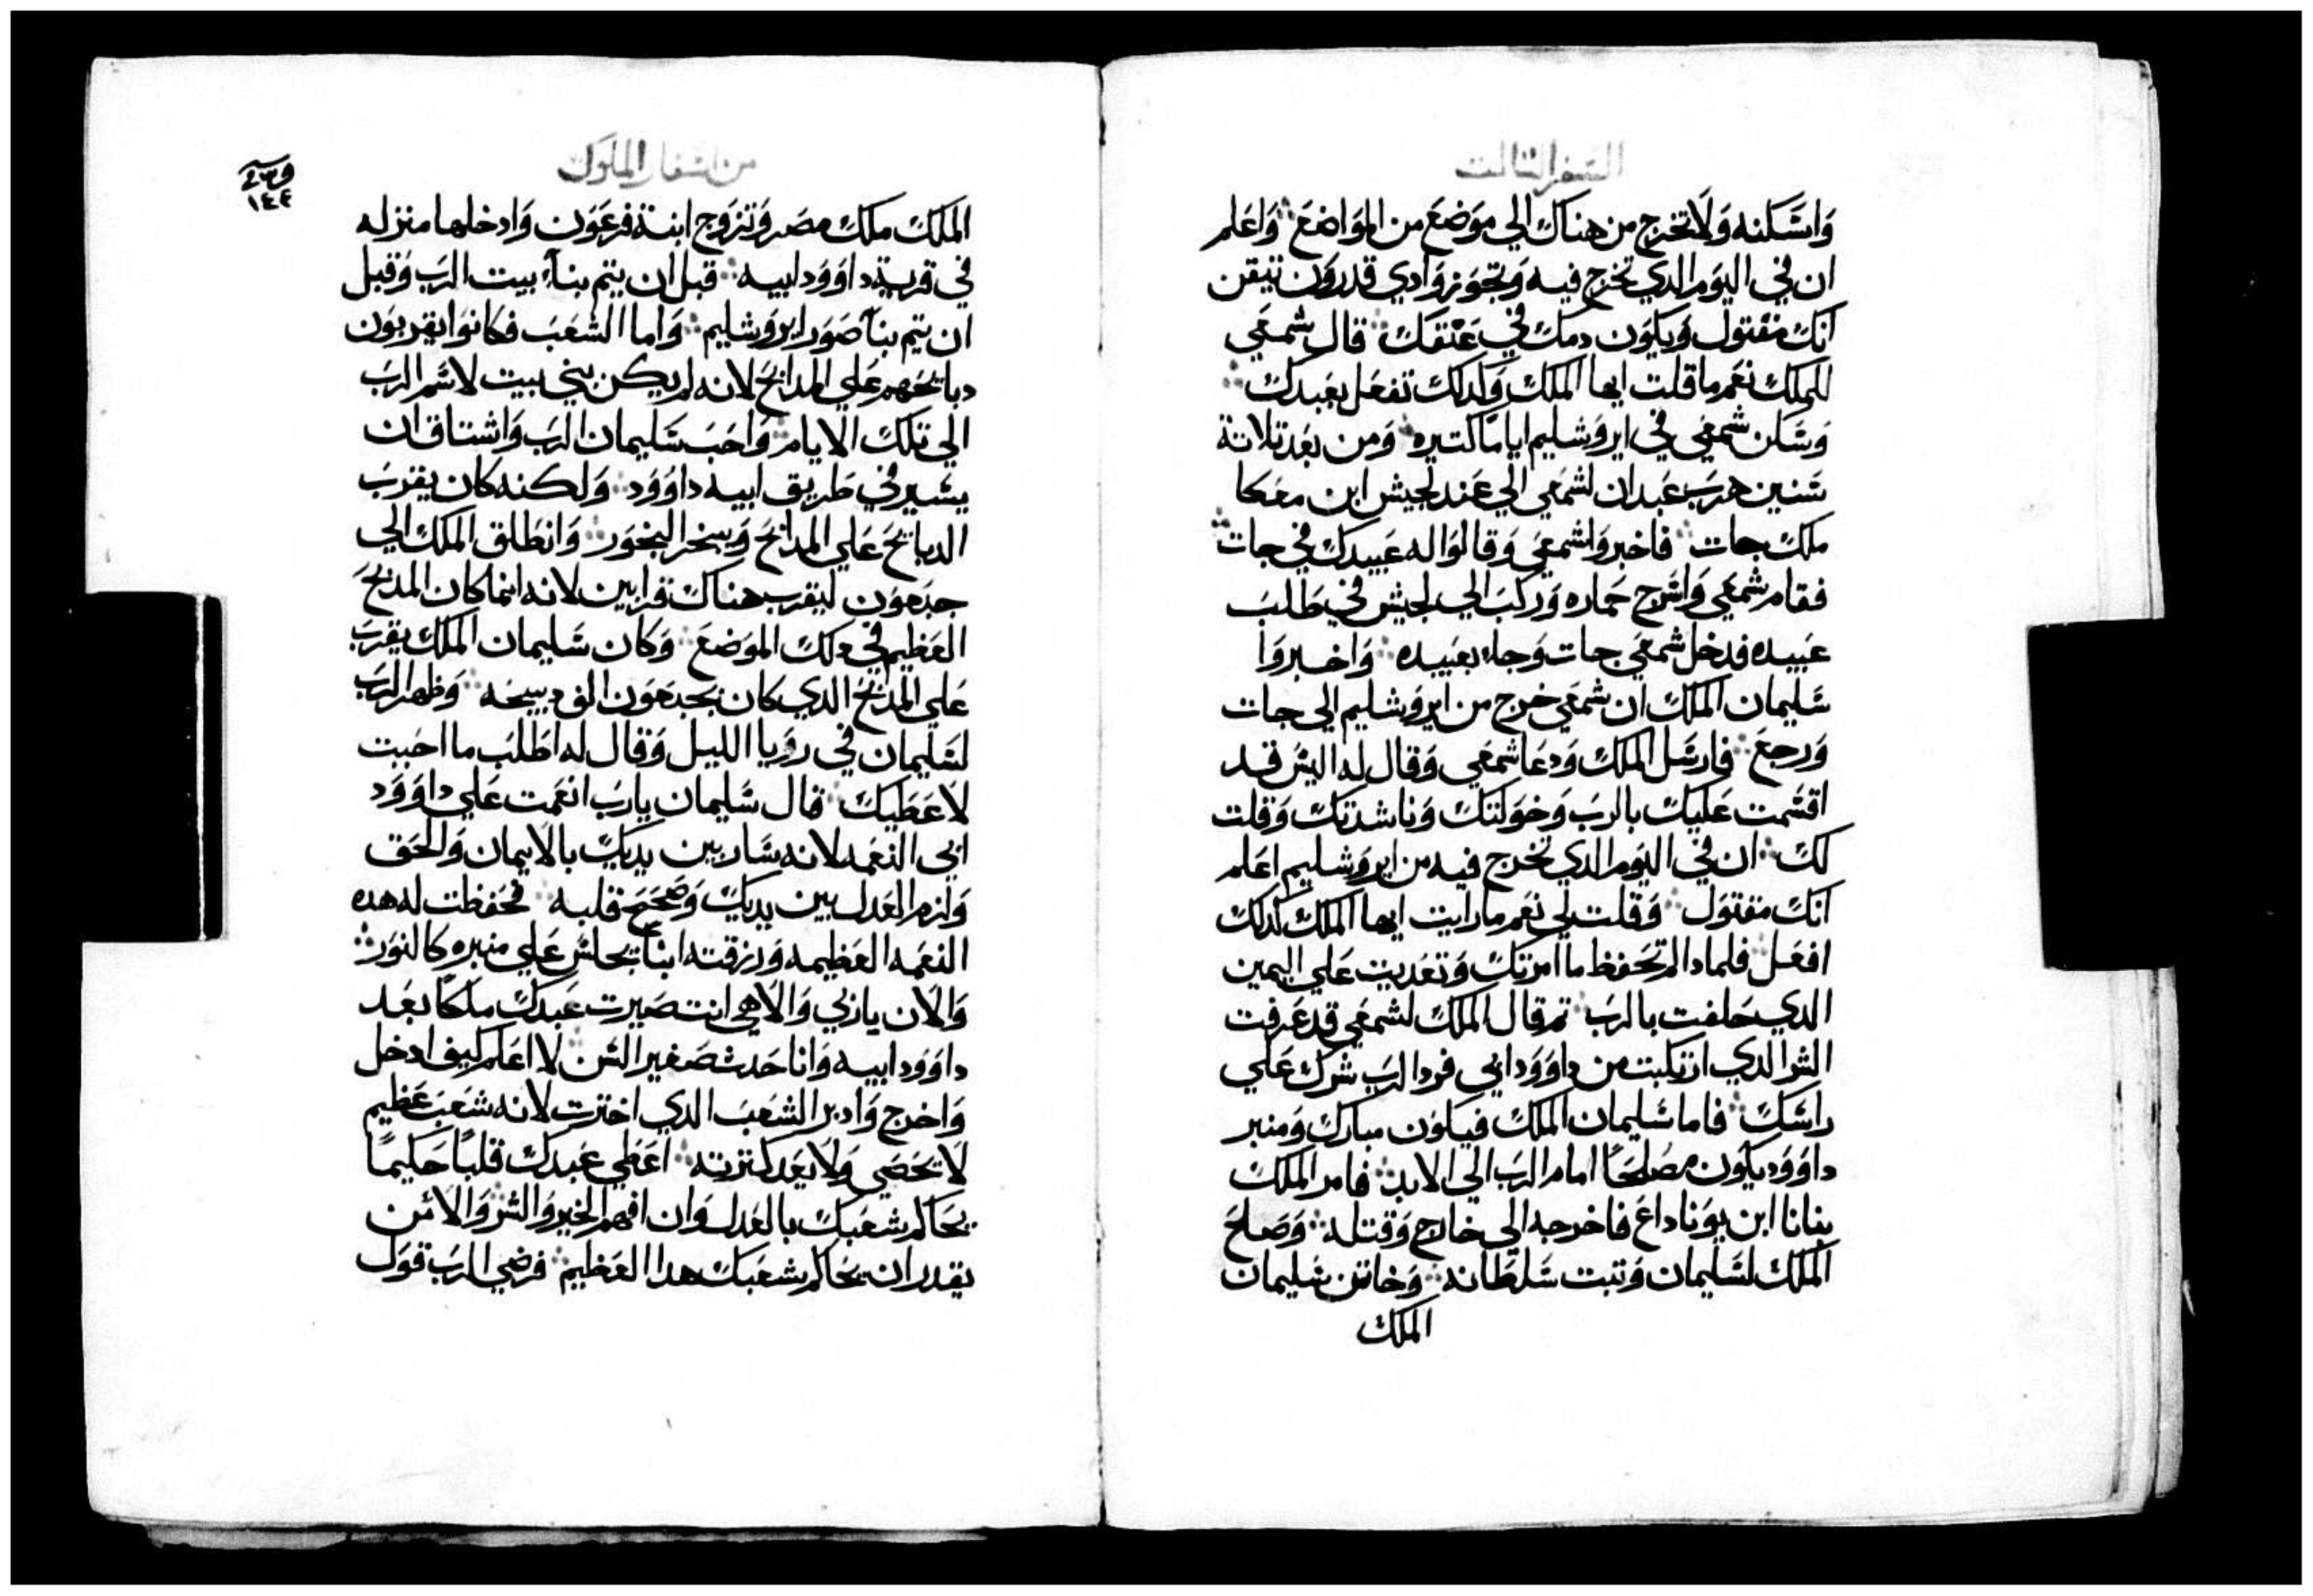 السفر الثالث
واسكنه ولا تخرج من هناك الي موضع من المواضع واعلم
ان في اليوم الدي تخرج فيه وتجوز وادي قدرون تيقن
انك مقتول ويكون دمك في عنقك قال شمعي
للملك نعم ما قلت ايها الملك وكدلك تفعل بعبدك
وسكن شمعي في ايروشليم اياما كتيره ومن بعد تلاتة
سنين هرب عبدان لشمعي الي عند لجيش ابن معكا
ملك جات فاخبروا شمعي وقالوا له عبيدك في جات
فقام شمعي واسرج حماره وركب الي لجيش في طلب
عبيده فدخل شمعي جات وجاء بعبيده واخبروا
سليمان الملك ان شمعي خرج من ايروشليم الي جات
ورجع فارسل الملك ودعا شمعي وقال له اليس قد
اقسمت عليك بالرب وناشدتك وقلت
لك ان في اليوم الدي تخرج فيه من ايروشليم اعلم
انك مقتول وقلت لي نعم ما رايت ايها الملك كدلك
افعل فلمادا لم تحفظ ما امرتك وتعديت علي اليمين
الدي حلفت بالرب تم قال الملك لشمعي قد عرفت
الشر الدي ارتكبت من داوود ابي فرد الرب شرك علي
راسك فاما سليمان الملك فيكون مبارك ومنبر
داوود يكون مصلحا امام الرب الي الابد فامر الملك
بنانا ابن يوناداع فاخرجه الي خارج وقتله وصلح
الملك لسليمان وتبت سلطانه وخاتن سليمان
الملك
من اسفار الملوك
١٤٤
الملك ملك مصر وتزوج ابنة فرعون وادخلها منزله
في قرية داوود ابيه قبل ان يتم بناء بيت الرب وقبل
ان يتم بنا صور ايروشليم واما الشعب فكانوا يقربون
دبايحهم علي المدابح لانه لم يكن بني بيت لاسم الرب
الي تلك الايام واحب سليمان الرب واشتاق ان
يسير في طريق ابيه داوود ولكنه كان يقرب
الدبايح علي المدابح ويبخر البخور وانطلق الملك الي
جبعون ليقرب هناك قرابين لانه انما كان المدبح
العظيم في دلك الموضع وكان سليمان الملك يقرب
علي المدبح الدي كان بجبعون الف دبيحه وظهر الرب
لسليمان في رويا الليل وقال له اطلب ما احببت
لاعطيك قال سليمان يارب انعمت علي داوود
ابي النعمه لانه سار بين يديك بالايمان والحق
ولزم العدل بين يديك وصحح قلبه فحفظت له هده
النعمه العظيمه ورزقته ابنا يجلس علي منبره كالنور
والان ياربي والاهي انت صيرت عبدك ملكا بعد
داوود ابيه وانا حدث صغير السن لا اعلم كيف ادخل
واخرج وادبر الشعب الدي اخترت لانه شعب عظيم
لا تحصي ولا يعد كترته اعطي عبدك قلبا حكيما
يحاكم شعبك بالعدل وان افهم الخير والشر والا من
يقدر ان يحاكم شعبك هدا العظيم فرضي الرب قول